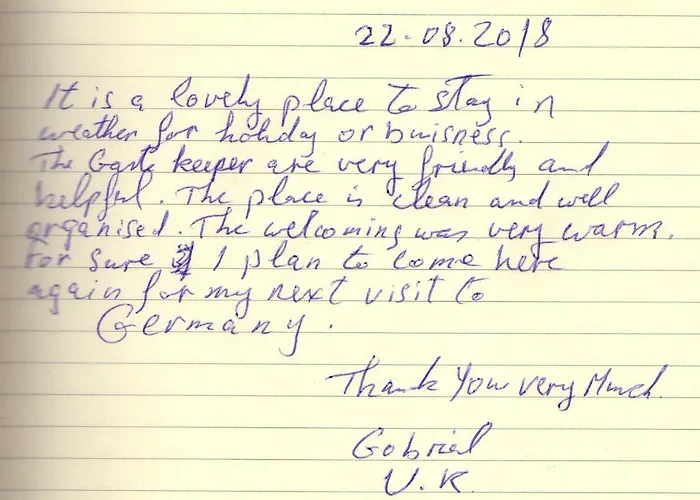 22.08.2018
It is a lovely place to stay in
weather for holiday or buisness.
The Gate keeper are very friendly and
helpful. The place is clean and well
organised. The welcoming was very warm.
For sure I plan to come here
again for my next visit to
Germany.
Thank You very Much.
Gobriel
U.K.